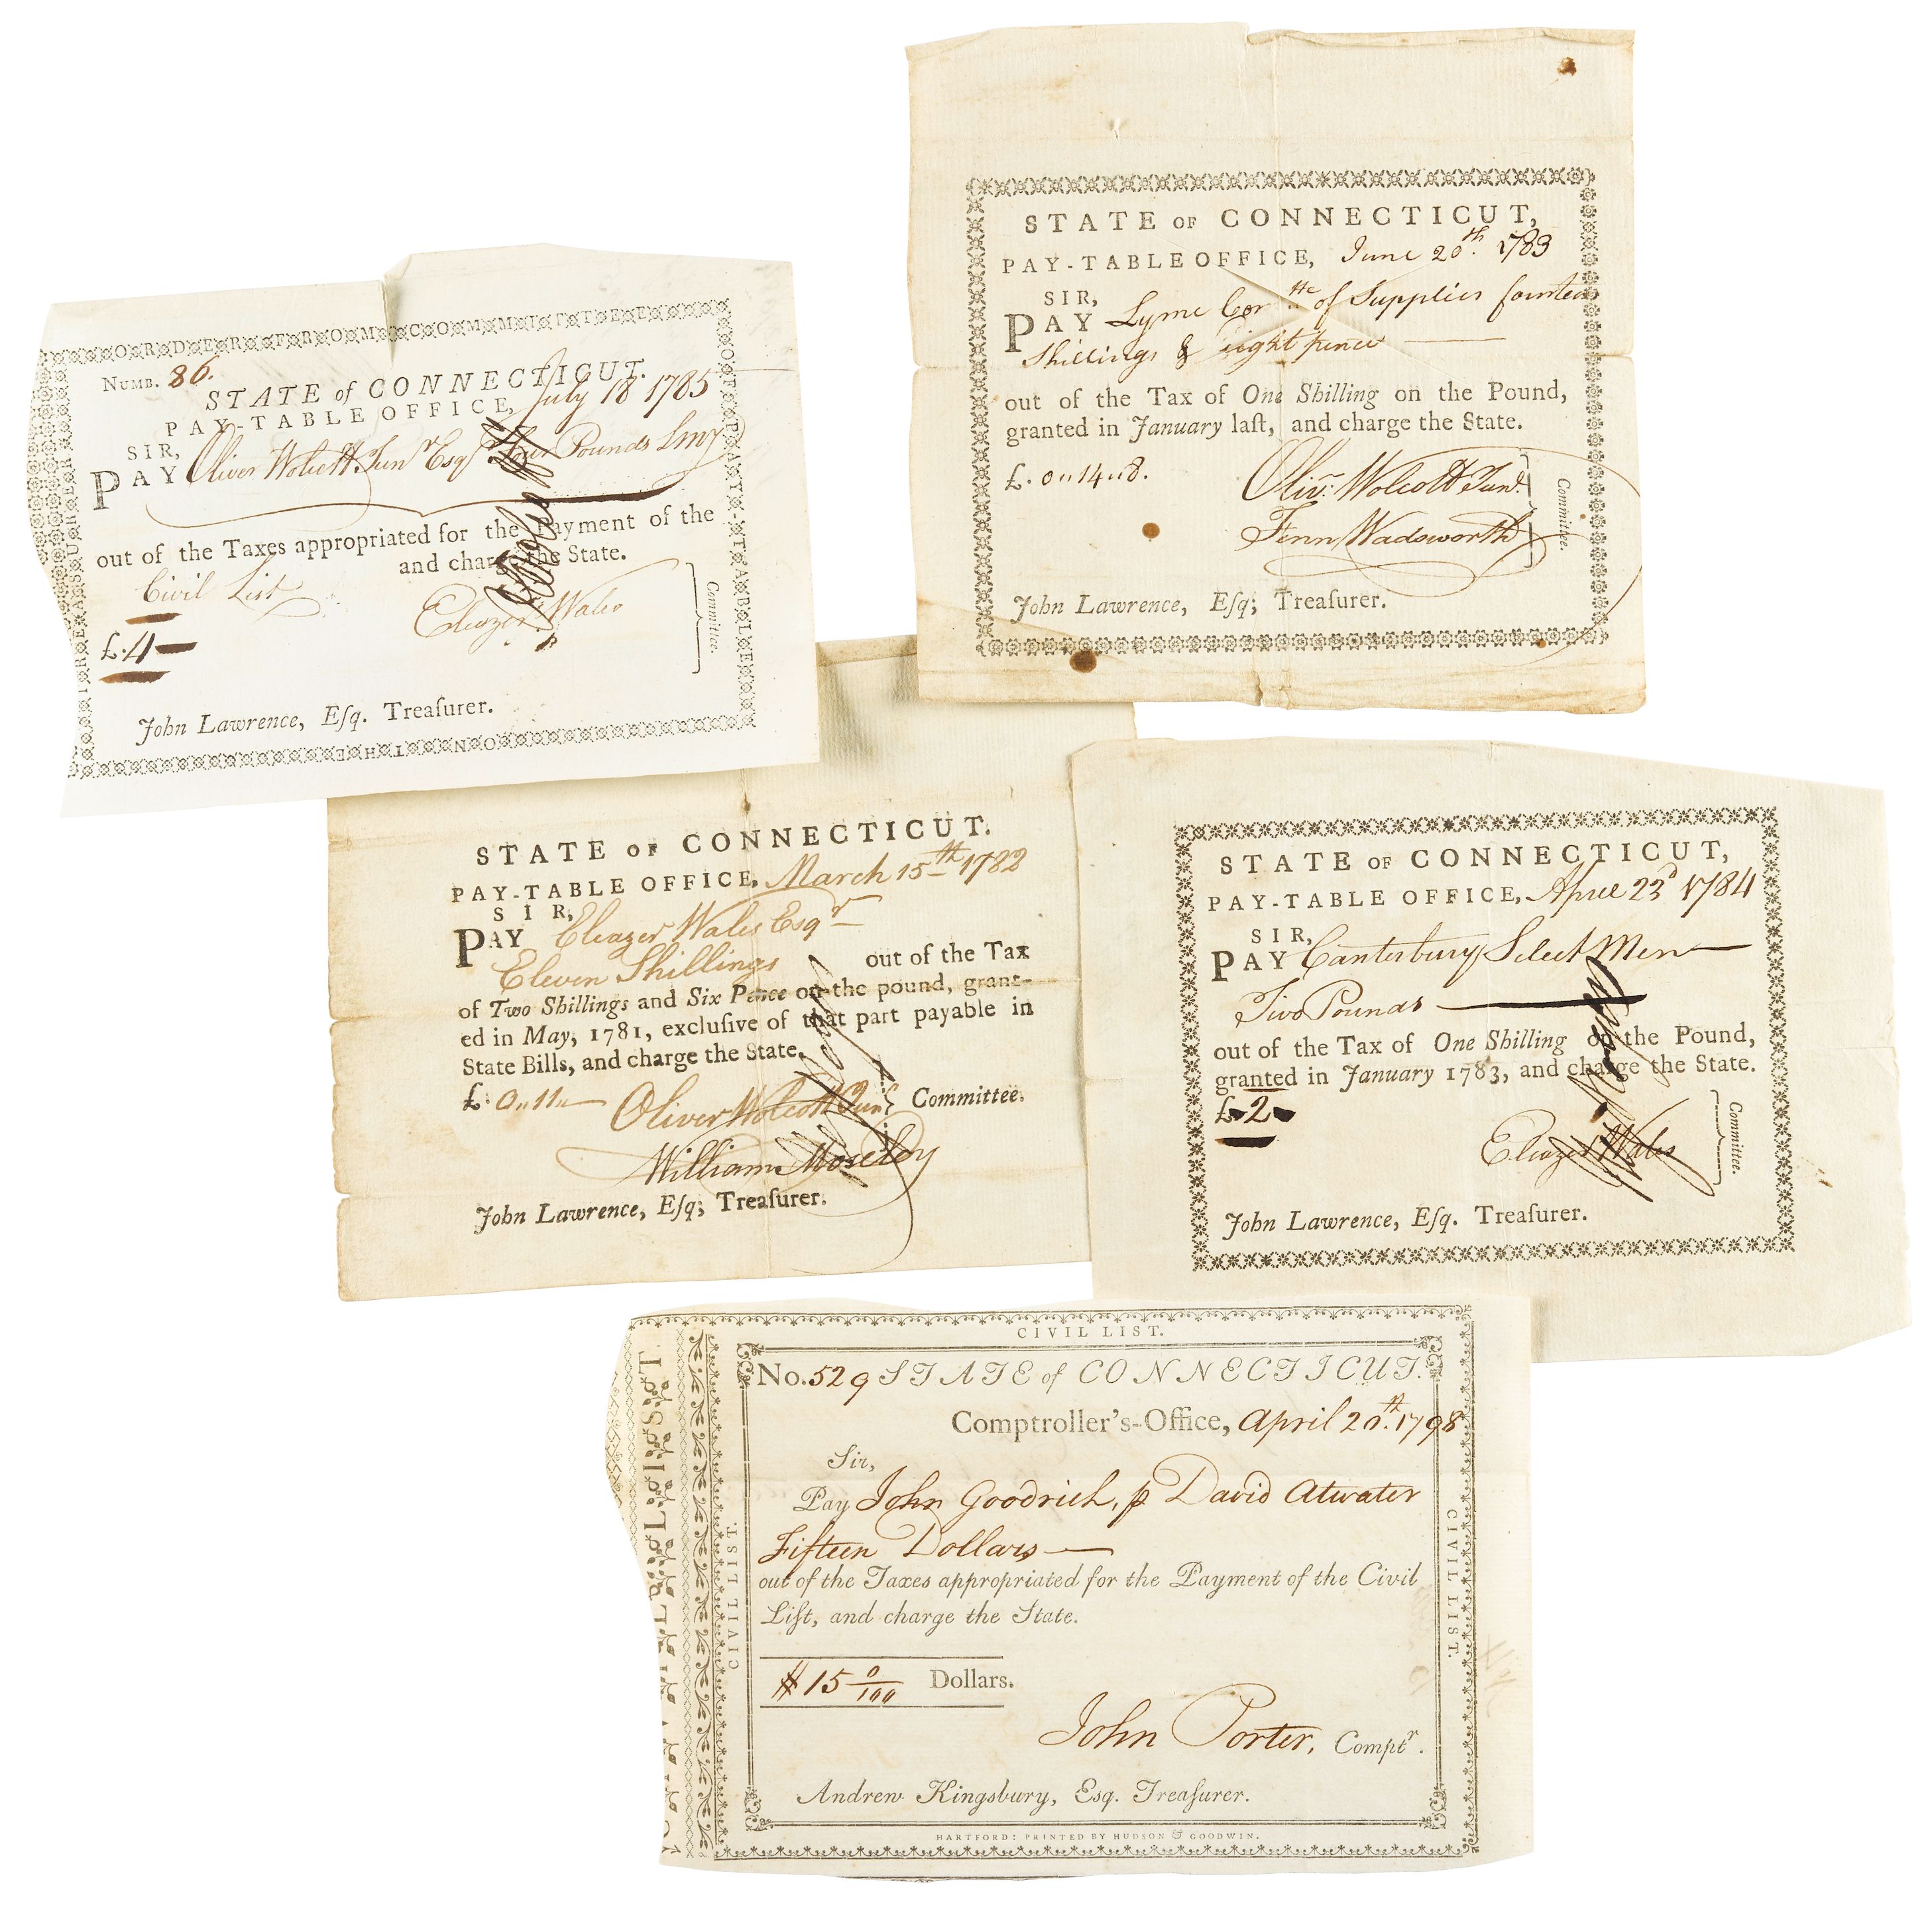 ORDER FROM COMMITTEE
OF PAY-TABLE
ON THE
TREASURER
NUMB. 86.
STATE of CONNECTICUT.
PAY-TABLE OFFICE, July 18 1785
SIR,
PAY Oliver Wolcott Junr Esqr Four Pounds Lmy
out of the Taxes appropriated for the Payment of the
Civil List and charge the State.
£.4
Eleazer Wales
Committee.
John Lawrence, Eſq. Treaſurer.
STATE OF CONNECTICUT,
PAY-TABLE OFFICE, June 20th. 1783
SIR,
PAY Lyme Comtte of Supplies fourteen
Shillings & Eight pence
out of the Tax of One Shilling on the Pound,
granted in January laſt, and charge the State.
£. 0 " 14 " 8.
Olivr. Wolcott Junr.
Fenn Wadsworth
Committee.
John Lawrence, Eſq; Treaſurer.
STATE OF CONNECTICUT.
PAY-TABLE OFFICE, March 15th 1782
SIR,
PAY Eleazer Wales Esqr
Eleven Shillings out of the Tax
of Two Shillings and Six Pence on the pound, grant-
ed in May, 1781, excluſive of that part payable in
State Bills, and charge the State.
£. 0 " 11 "
Oliver Wolcott Junr
William Moseley
Committee.
John Lawrence, Eſq; Treaſurer.
STATE OF CONNECTICUT,
PAY-TABLE OFFICE, April 23d 1784
SIR,
PAY Canterbury Select Men
Two Pounds
out of the Tax of One Shilling on the Pound,
granted in January 1783, and charge the State.
£ 2
Eleazer Wales
Committee.
John Lawrence, Eſq. Treaſurer.
CIVIL LIST.
CIVIL LIST.
CIVIL LIST.
No. 529 STATE of CONNECTICUT.
Comptroller's-Office, April 20th. 1798
Sir,
Pay John Goodrich, p David Atwater
Fifteen Dollars
out of the Taxes appropriated for the Payment of the Civil
Liſt, and charge the State.
$ 15 0/100 Dollars.
John Porter, Comptr.
Andrew Kingsbury, Esq. Treaſurer.
HARTFORD: PRINTED BY HUDSON & GOODWIN.